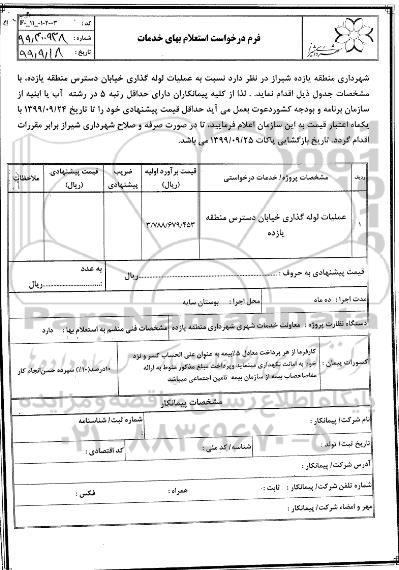 فرم درخواست استعلام بهای خدمات
کد:
شماره: ۹۹٫۲۰۰۹۳۸
تاریخ: ۹۹٫۹٫۱۸
شهرداری منطقه یازده شیراز در نظر دارد نسبت به عملیات لوله گذاری خیابان دسترس منطقه یازده، با
مشخصات جدول ذیل اقدام نماید. . لذا از کلیه پیمانکاران دارای حداقل رتبه ۵ در رشته آب یا ابنیه از
سازمان برنامه و بودجه کشوردعوت بعمل می آید حداقل قیمت پیشنهادی خود را تا تاریخ ۱۳۹۹/۰۹/۲۴ با
یکماه اعتبار قیمت به این سازمان اعلام فرمایند، تا در صورت صرفه و صلاح شهرداری شیراز برابر مقررات
اقدام گردد. تاریخ بازگشایی پاکات ۱۳۹۹/۰۹/۲۵ می باشد.
ردیف مشخصات پروژه/ خدمات درخواستی قیمت برآورد اولیه (ریال) ضریب پیشنهادی قیمت پیشنهادی (ریال) ملاحظات
۱ عملیات لوله گذاری خیابان دسترس منطقه یازده ۳/۷۸۸/۶۷۹/۴۵۳
قیمت پیشنهادی به حروف : ریال
به عدد ریال
مدت اجرا: ده ماه محل اجرا: بوستان سایه
دستگاه نظارت پروژه : معاونت خدمات شهری شهرداری منطقه یازده مشخصات فنی منضم به استعلام بها: دارد
کسورات پیمان: کارفرما از هر پرداخت معادل ۵٪بیمه به عنوان علی الحساب کسر و نزد
خود به امانت نگهداری مینماید وپرداخت مبلغ مذکور منوط به ارائه
مفاصاحساب بیمه از سازمان بیمه تامین اجتماعی میباشد
۱۰درصد(۱۰٪) سپرده حسن انجام کار
مشخصات پیمانکار
نام شرکت/ پیمانکار: شماره ثبت/ شناسنامه
تاریخ ثبت/ تولد: شناسه/ کد ملی: کد اقتصادی:
آدرس شرکت/ پیمانکار:
شماره تلفن شرکت/ پیمانکار: ثابت: همراه: فکس:
مهر و امضاء شرکت/ پیمانکار:
ParsNamadData
پایگاه اطلاع رسانی مناقصه و مزایده
۰۲۱-۸۸۳۴۹۶۷۰-۵